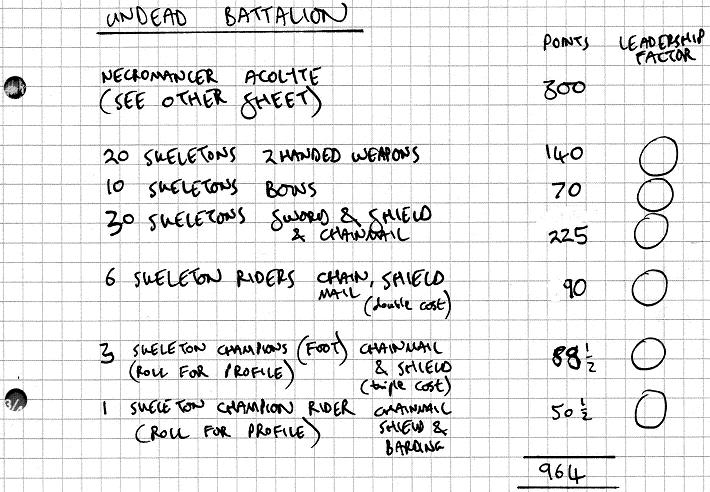 UNDEAD BATTALION
POINTS LEADERSHIP FACTOR
NECROMANCER ACOLITE
(SEE OTHER SHEET) 300
20 SKELETONS 2 HANDED WEAPONS 140
10 SKELETONS BOWS 70
30 SKELETONS SWORD & SHIELD
& CHAINMAIL 225
6 SKELETON RIDERS CHAIN, SHIELD
MAIL (double cost) 90
3 SKELETON CHAMPIONS (FOOT) CHAINMAIL
(ROLL FOR PROFILE) & SHIELD 88 1/2
(triple cost)
1 SKELETON CHAMPION RIDER CHAINMAIL
(ROLL FOR PROFILE) SHIELD & 50 1/2
BARDING
964